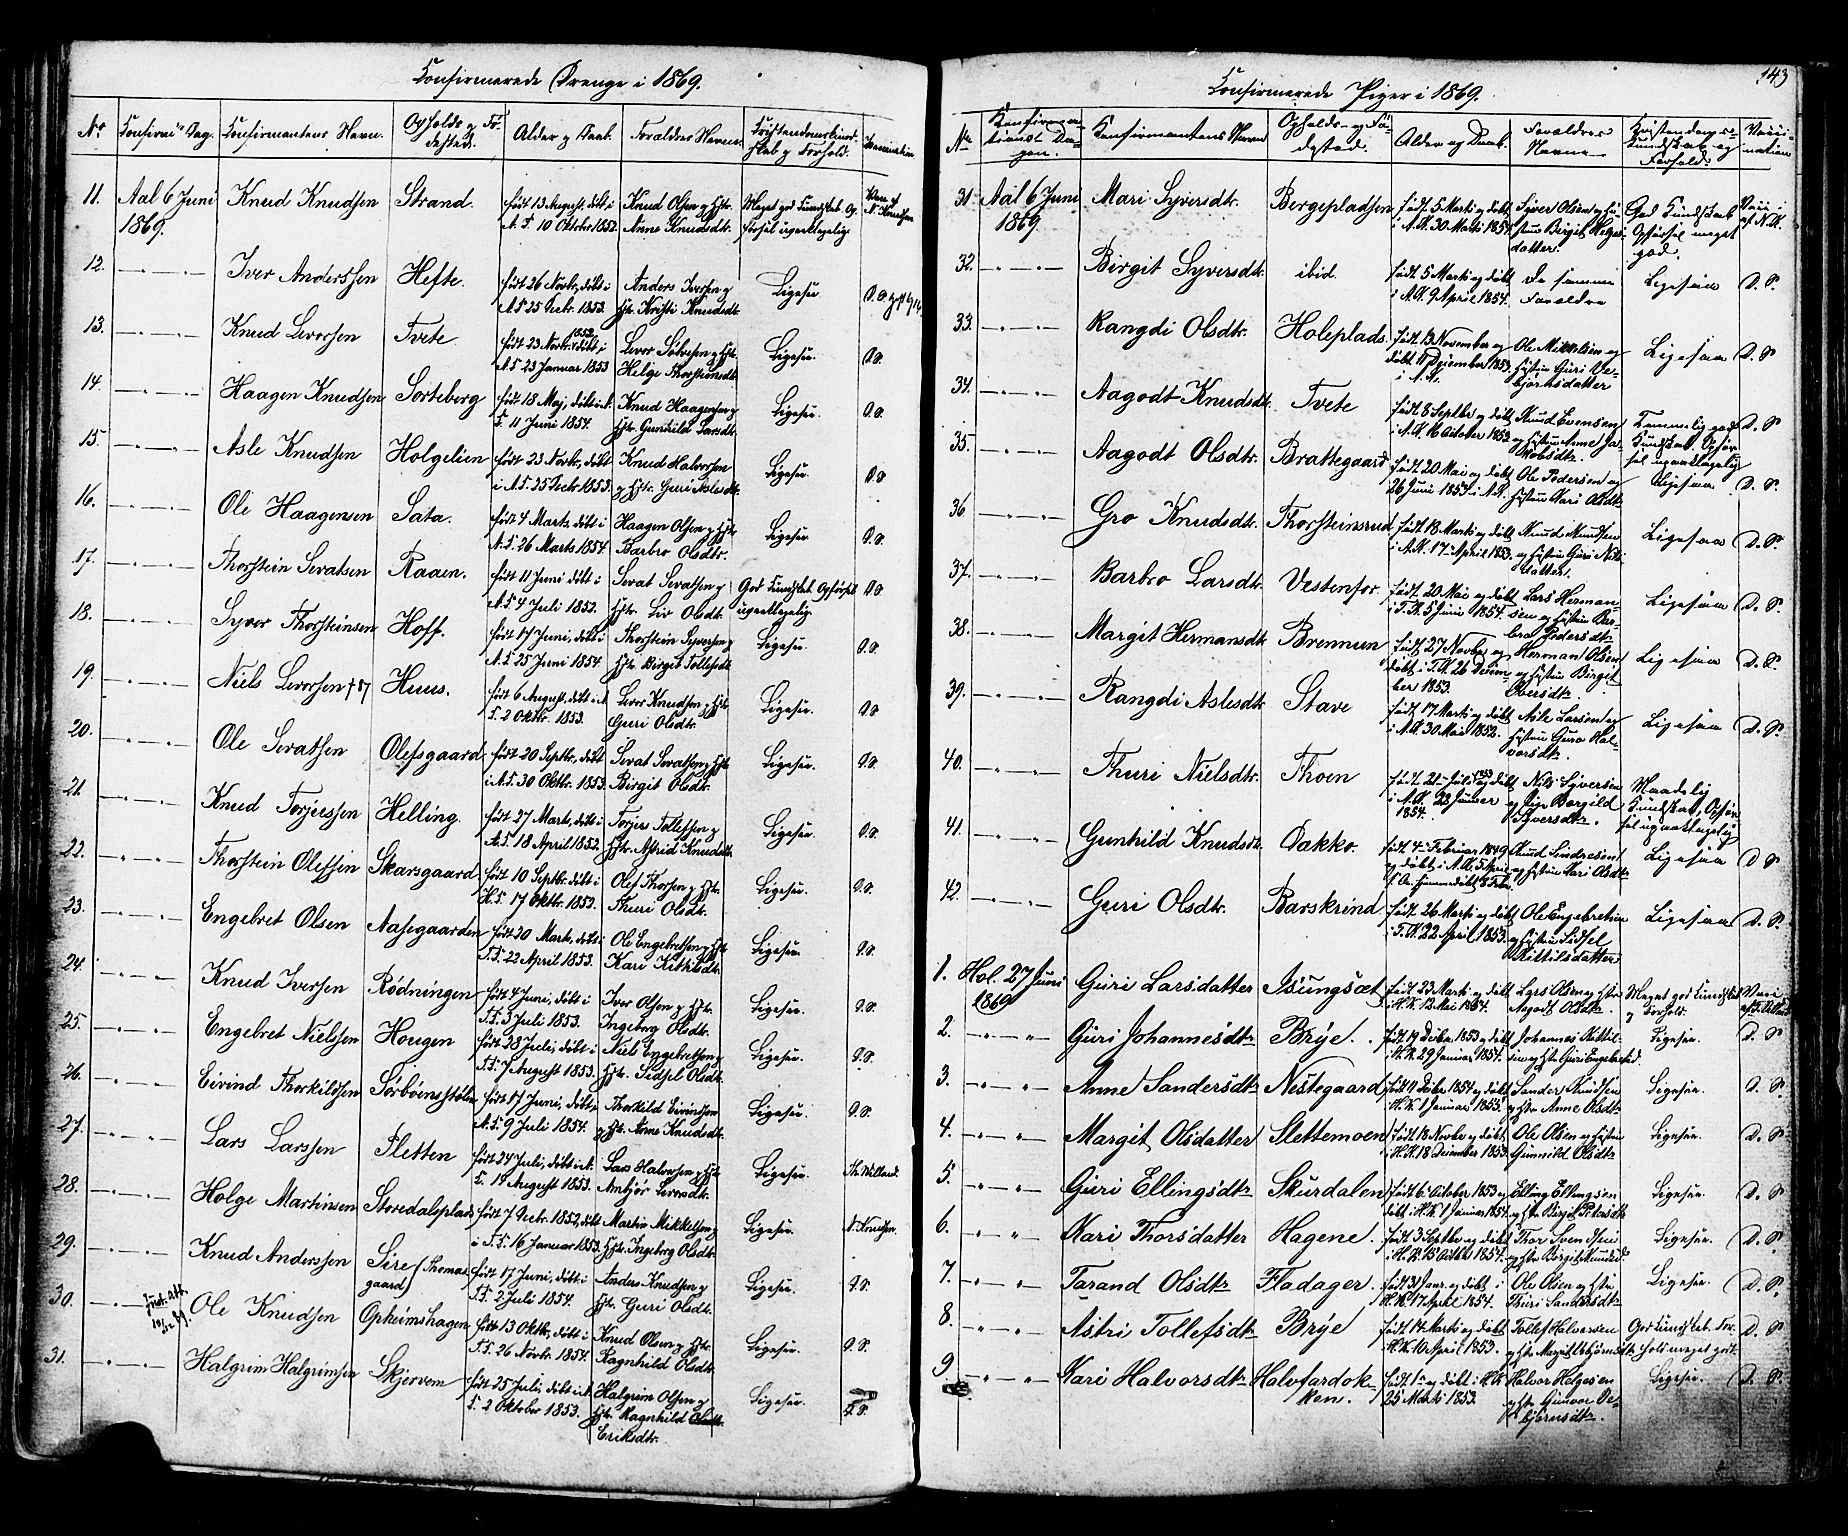 Konfirmerede Drenge i 1869.
No Confirm. Dag. Konfirmantens Navn. Opholds og Fødested. Alder og Daab. Forældres Navne. Kristendomskundskab og Forhold. Vaccination
11. Aal 6 Juni 1869. Knud Knudsen Strand. født 13 August, døbt i A. K. 10 Oktober 1852. Knud Olsen og Hstr. Anne Knudsdtr. Meget god Kundskab. Opførsel upaaklagelig N. Knudsen
12. Iver Anderssen Hefte. født 26 Novbr, døbt i A. K. 25 Decbr. 1853. Anders Iversen og Hstr. Kristi Knudsdtr. Ligesaa D. S.
13. Knud Levorsen Tvete født 23 Novbr. 1852, døbt i A. K. 23 Januar 1853 Levor Sølvesen og Hstr. Helge Thorsteinsdtr. Ligesaa. D. S.
14. Haagen Knudsen Sorteberg født 18 Maj, døbt i A. K. 11 Juni 1854. Knud Haagensen og Hstr. Gunhild Larsdtr. Ligesaa. D. S.
15. Asle Knudsen Holgelien født 23 Novbr, døbt i A. K. 25 Decbr. 1853. Knud Halvorsen og Hstr. Guri Aslesdtr. Ligesaa. D. S.
16. Ole Haagensen Sata. født 4 Marts, døbt i A. K. 26 Marts 1854 Haagen Olsen og Hstr. Barbro Olsdtr. Ligesaa D. S.
17. Thorstein Sevatsen Raaen. født 11 Juni døbt i A. K. 4 Juli 1852. Sevat Sevatsen og Hstr. Liv Olsdtr. God Kundskab. Opførsel upaaklagelig D. S.
18. Syver Thorsteinsen Hoff. født 17 Juni, døbt i A. K. 25 Juni 1854. Thorstein Syversen og Hstr. Birgit Tollefsdtr Ligesaa. D. S.
19. Niels Levorsen Huus. født 6 August, døbt i A. K. 2 Oktbr. 1853. Levor Knudsen og Hstr. Guri Olsdtr. Ligesaa. D. S.
20. Ole Sevatsen Olefsgaard født 20 Septbr, døbt i A. K. 30 Oktbr. 1853. Sevat Sevatsen og Hstr. Birgit Olsdtr. Ligesaa. D. S.
21. Knud Torjerssen Helling. født 27 Marts, døbt i A. K. 18 April 1852. Torjers Tollefsen og Hstr. Astrid Knudsdtr. Ligesaa. D. S.
22. Thorstein Olefsen Skarsgaard født 10 Septbr. døbt i H. K. 17 Oktbr. 1852. Olef Thorsen og Hstr. Thuri Olsdtr. Ligesaa. D. S.
23. Engebret Olsen Aasegaarden født 20 Marts, døbt i T. K. 22 April 1853. Ole Engebretsen og Hstr. Kari Kittilsdtr. Ligesaa. D. S.
24. Knud Iversen Rødningen født 4 Juni, døbt i T. K. 3 Juli 1853. Iver Olsen og Hstr. Ingebrg Olsdtr. Ligesaa. D. S.
25. Engebret Nielssen Hougen født 28 Juli, døbt i T. K. 7 August 1853. Niels Engebretsen og Hstr. Sidsel Olsdtr. Ligesaa. D. S.
26. Eivind Thorkildsen Sørbønsstølen født 17 Juni, døbt i A. K. 9 Juli 1854. Thorkild Eivindsen og Hstr. Anne Knudsdtr. Ligesaa. D. S.
27. Lars Larssen Fletten født 24 Juli, døbt i A. K. 14 August 1853. Lars Halvorsen og Hstr. Ambjør Levorsdtr. Ligesaa.
28. Holge Martinsen Storedalsplads født 7 Decbr. 1852, døbt i T. K. 16 Januar 1853. Martin Mikkelsen og Hstr. Ingeborg Olsdtr. Ligesaa. N. Knudsen.
29. Knud Anderssen Sire (Thomasgaard) født 17 Juni, døbt i T. K. 2 Juli 1854. Anders Knudsen og Hstr. Guri Olsdtr. Ligesaa. D. S.
30. Just. Att. Ole Knudsen Opheimshagen født 13 Oktbr, døbt i T. K. 26 Novbr. 1854. Knud Olsen og Hstr. Ragnhild Olsdtr. Ligesaa. D. S.
31. Halgrim Halgrimsen Skjervem født 25 Juli, døbt i A. K. 2 Oktober 1853. Halgrim Olsen og Hstr. Ragnhild Eriksdtr. Ligesaa. D. S.
143
Konfirmerede Piger i 1869.
No Konfirmations Dagen. Konfirmantens Navn Opholds- og Fødested. Alder og Daab. Forældres Navne Kristendoms Kundskab og Forhold Vaccination
31 Aal 6 Juni 1869. Mari Syversdtr. Bergepladsen født 5 Marts og døbt i A. K. 30 Marts 1854 Syver Olsen og Hustru Birgit Helgesdatter. God Kundskab Opførsel meget god. Vacc. af N. K.
32. Birgit Syversdtr. ibid. født 5 Marts og døbt i A. K. 9 April 1854. De samme Forældre Ligesaa D. S.
33. Rangdi Olsdtr. Holeplads. født 13 November og døbt 11 Dezember 1853 i A. K. Ole Mikkelsen og Hustru Guri Vebjørnsdatter Ligesaa D. S.
34. Aagodt Knudsdtr. Tvete født 8 Septbr og døbt i A. K. 16 October 1853 Knud Evensen og Hustru Anne Jakobsdtr. Temmelig god Kundskab. Opførsel upaaklagelig D. S.
35. Aagodt Olsdtr. Brattegaard født 20 Mai og døbt 26 Juni 1854 i A. K. Ole Pedersen og Hustru Kari Olsdtr. Ligesaa D. S.
36 Gro Knudsdtr. Thorsteinsrud født 18 Marts og døbt i A. K. 17 April 1853. Knud Knudsen og Hustru Guri Nilsdatter. Ligesaa D. S.
37. Barbro Larsdtr. Vestenfor. født 20 Mai og døbt i T. K. 5 Juni 1854. Lars Hermansen og Hustru Barbro Pedersdtr. Ligesaa D. S.
38. Margit Hermansdtr. Brennun født 27 Novbr og døbt i T. K. 26 December 1853. Herman Olsen og Hustru Birgit Ligesaa D. S.
39. Rangdi Aslesdtr. Stave født 17 Marts og døbt i A. K. 30 Mai 1852. Asle Larsen og Hustru Guro Halvorsdtr. Ligesaa D. S.
40. Thuri Nielsdtr. Thoen født 21 Juli og døbt i A. K. 22 Januar 1854. Nils Syversen og Pige Borgild Syversdtr. Maadelig Kundskab, Opførsel upaaklagelig
41. Gunhild Knudsdtr. Dakko. født 4 Februar 1849 og døbt i A. K. 5 April Knud Sindresen og Hustru Kari Olsdtr. Ligesaa D. S.
42. Guri Olsdtr. Barskrind født 26 Marts og døbt i T. K. 22 April 1853. Ole Engebretsen og Hustru Sidsel Kittilsdatter Ligesaa D. S.
1. Hol. 27 Juni 1869 Guri Larsdatter Isungsæt født 23 Marts og døbt i H. K. 13 Mai 1854. Lars Olsen og Hstr. Aagodt Olsdtr. Meget god Kundskab og Forhold.
2. Guri Johannesdtr Brye. født 19 Decbr. 1853 og døbt i H. K. 29 Januar 1854. Johannes Kittilsen og Hstr Guri Engebretsd. Ligesaa. D. S.
3. Anne Sandersdtr Nestegaard født 9 Decbr. 1854 og døbt i H. K. 1 Januar 1853. Sander Knudsen og Hstr Anne Olsdtr. Ligesaa. D. S.
4. Margit Olsdatter Slettemoen født 18 Novbr og døbt i H. K. 18 December 1853. Ole Olsen og Hustru Gunnild Olsdtr. Ligesaa. D. S.
5. Guri Ellingsdtr Skurdalen født 6 October 1853 og døbt i H. K. 1 Januar 1854 Elling Ellingsen og Hstr Birgit Ligesaa. D. S.
6. Kari Thorsdatter Hagene. født 3 Septbr og døbt i H. K. 15 Octbr 1854. Thor Svendsen og Hstr Birgit Knudsd. Ligesaa. D. S.
7. Tarand Olsdtr Fladager. født 31 Janr og døbt i H. K. 17 April 1854. Ole Olsen og Hstru Thuri Sandersdtr Ligesaa. D. S.
8. Astri Tollefsdtr Brye født 14 Marts og døbt i H. K. 10 April 1853. Tollef Halvorsen og Hstr Margit Asbjørnsdtr. God Kundskab. Forhold meget godt. D. S.
9 Kari Halvorsdtr Halvfardokken. født 1 og døbt i H. K. 25 Marts 1853. Halvor Helgesen og Hstr Gunvor Vebjørnsdtr. Ligesaa. D. S.